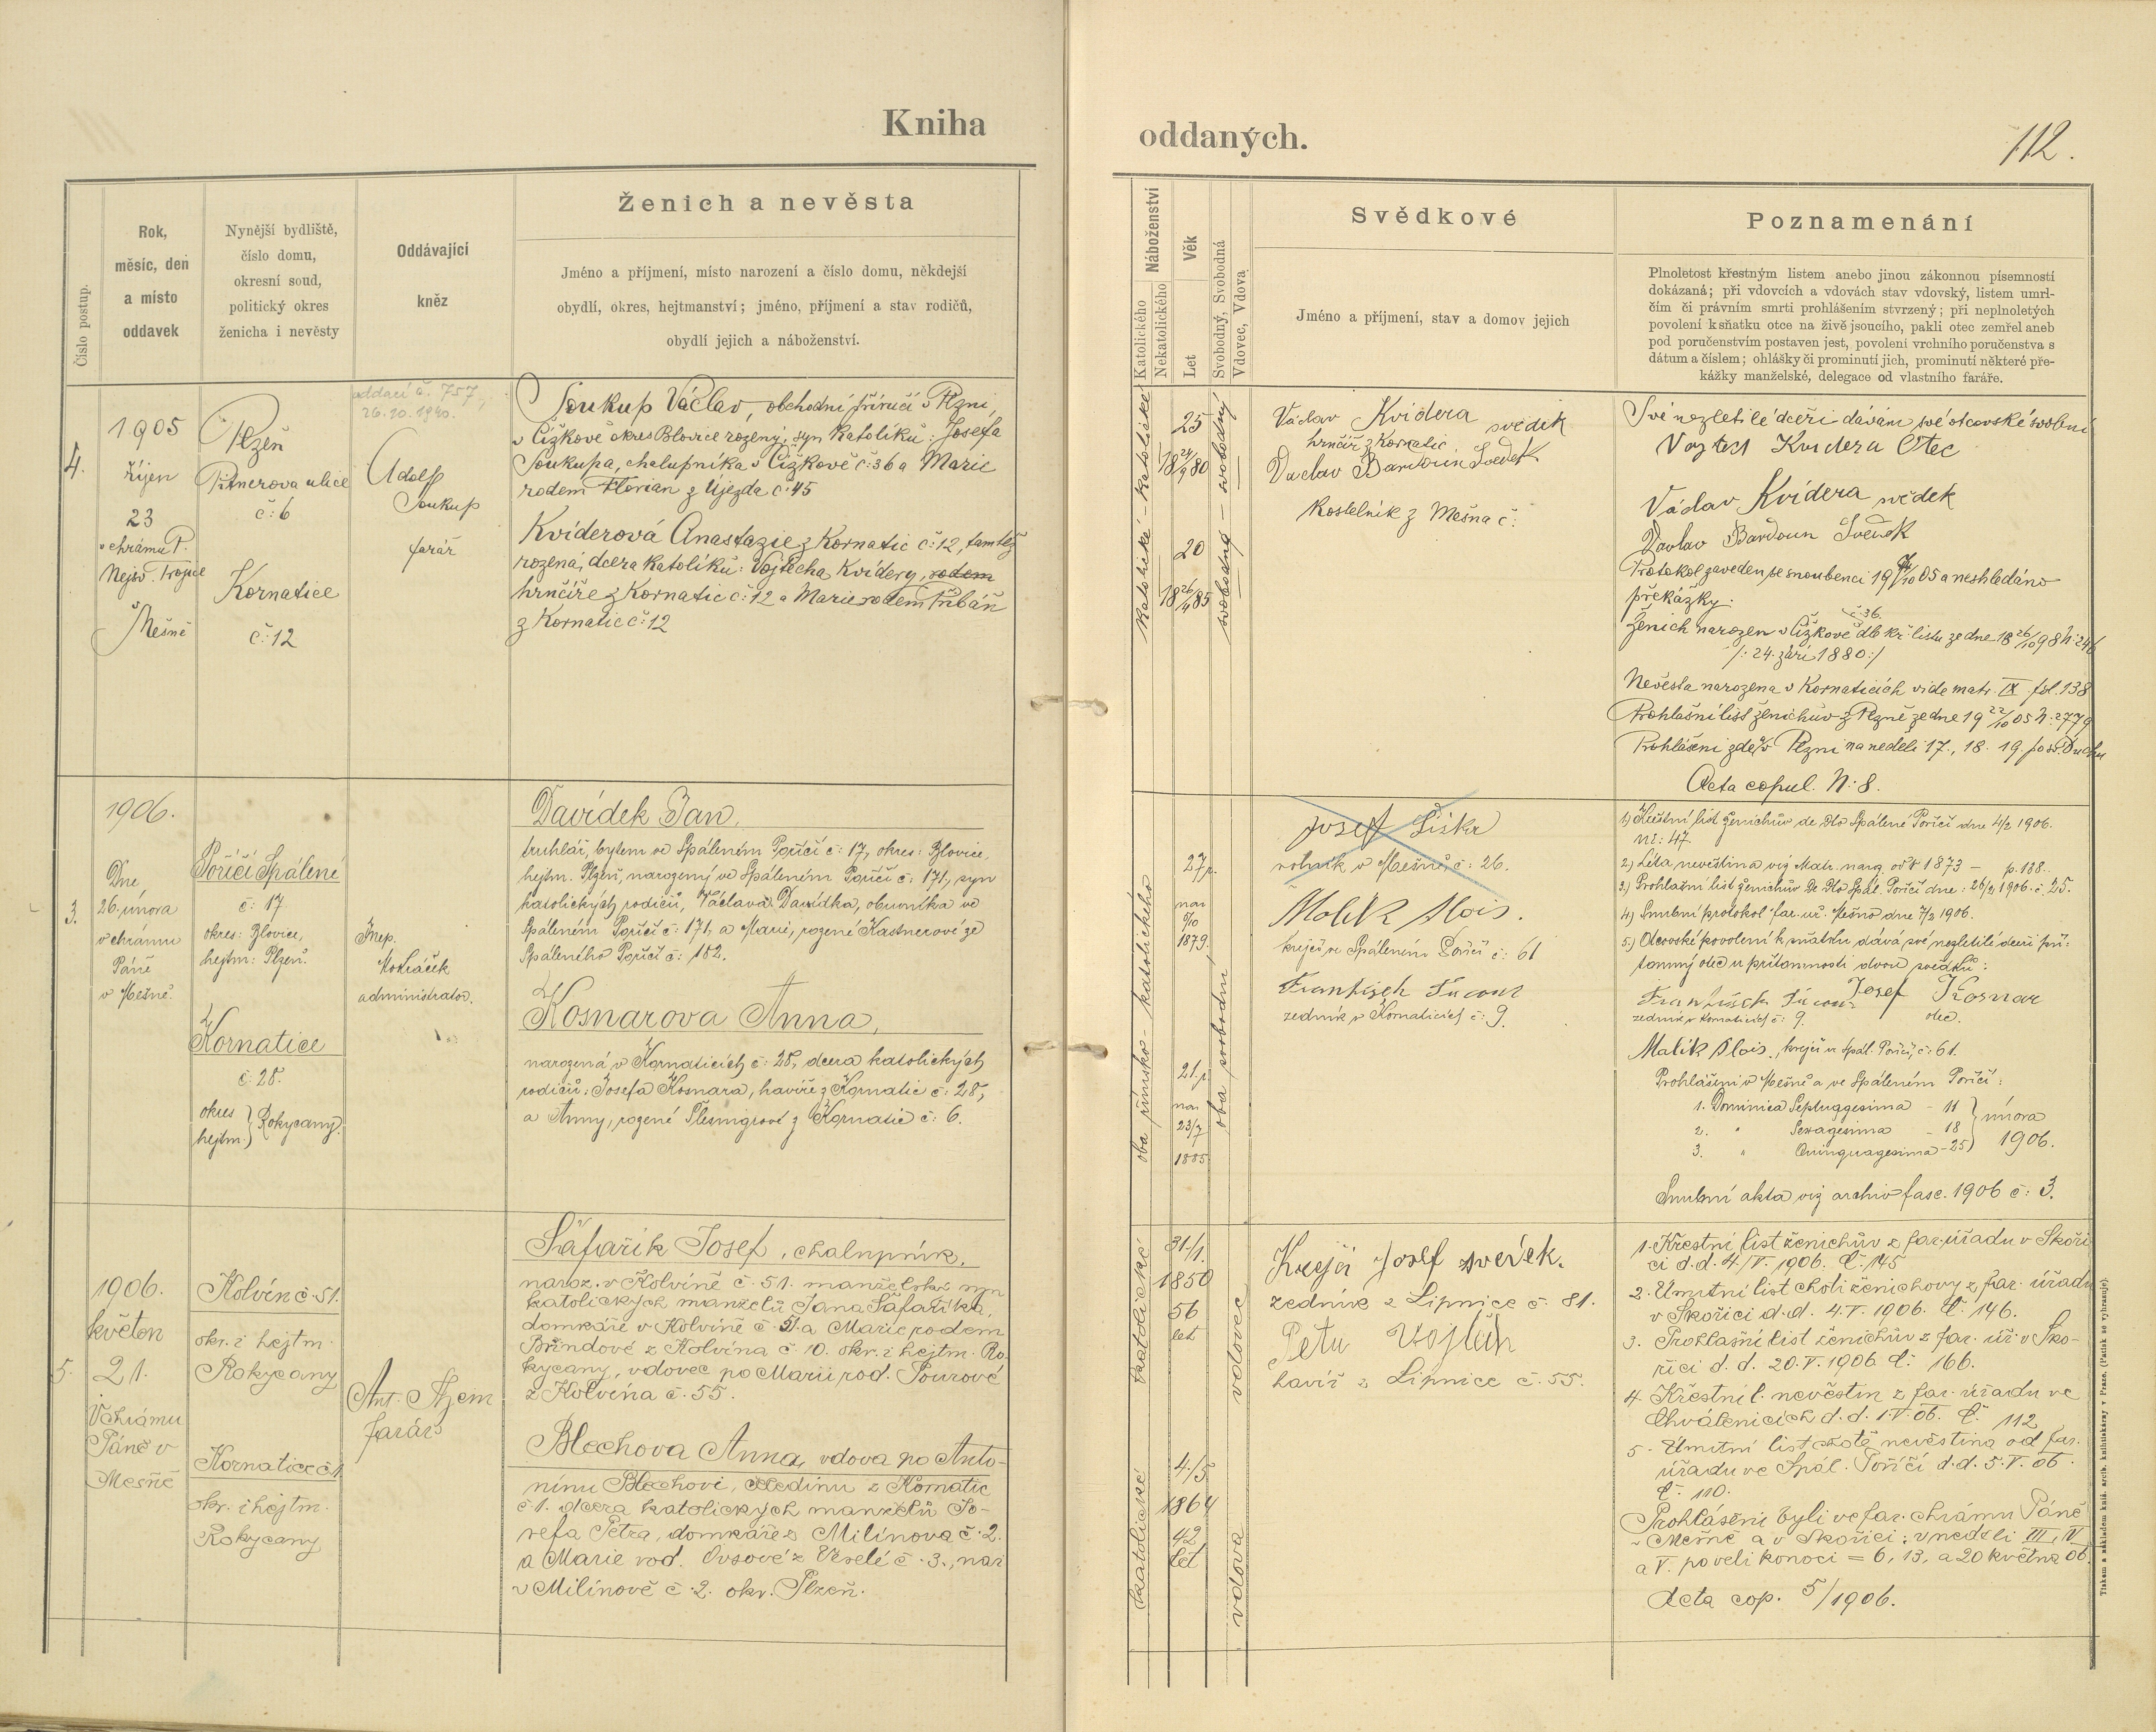 Kniha
oddaných.
112.
Číslo postup.
Rok,
měsíc, den
a místo
oddavek
Nynější bydliště,
číslo domu,
okresní soud,
politický okres
ženicha i nevěsty
Oddávající
kněz
Ženich a nevěsta
Jméno a příjmení, místo narození a číslo domu, někdejší
obydlí, okres, hejtmanství; jméno, příjmení a stav rodičů,
obydlí jejich a náboženství.
Náboženství
Katolického
Nekatolického
Věk
Let
Svobodný, Svobodná
Vdovec, Vdova
Svědkové
Jméno a příjmení, stav a domov jejich
Poznamenání
Plnoletost křestným listem anebo jinou zákonnou písemností
dokázaná; při vdovcích a vdovách stav vdovský, listem umrl-
čím či právním smrti prohlášením stvrzený; při neplnoletých
povolení k sňatku otce na živě jsoucího, pakli otec zemřel aneb
pod poručenstvím postaven jest, povolení vrchního poručenstva s
dátum a číslem; ohlášky či prominutí jich, prominutí některé pře-
kážky manželské, delegace od vlastního faráře.
4.
1905
říjen
23
v chrámu P.
Nejsv. Trojice
v Mešně
Plzeň
č: 6
Kornatice
č: 12
oddací č. 757,
26.10.1940.
Adolf
Soukup
farář
Soukup Václav, obchodní příručí v Plzni,
v Čížkově okres Blovice rozený, syn katolíků: Josefa
Soukupa, chalupníka v Čížkově č: 36 a Marie
rodem Florian z Újezda č: 45
Kviderová Anastazie z Kornatic č: 12, tamtéž
rozená, dcera katolíků: Vojtěcha Kvidery, rodem
hrnčíře z Kornatic č: 12 a Marie rodem Hrbáň
z Kornatic č: 12
katolické - katolické
25
18 24/9 80
20
18 26/4 85
svobodný - svobodný
Václav Kvidera svědek
hrnčíř z Kornatic
Václav Bardoun Svědek
Kostelník z Mešna č:
Své nezletilé dceři dávám své otcovské svolení
Vojtěch Kvidera Otec
Václav Kvidera svědek
Václav Bardoun Svědek
Protokol zaveden se snoubenci 19 /10 05 a neshledáno
překážky.
č: 36.
Ženich narozen v Čížkově dlb kř. listu ze dne 18 26/10 98 N: 246
/: 24. září 1880 :/
Nevěsta narozena v Kornaticích vide matr. IX. fol. 138
Prohlašní list ženichův z Plzně ze dne 19 22/10 05 N: 2779
Prohlášeni zde v Plzni na neděli 17., 18. 19. po sv. Duchu
Acta copul. N: 8.
3.
1906.
Dne
26. února
v chrámu
Páně
v Mešně.
Poříčí Spálené
č: 17
okres: Blovice,
hejtm: Plzeň.
Kornatice
č: 28.
okres
hejtm.
Rokycany.
administrátor.
Davídek Jan,
truhlář, bytem ve Spáleném Poříčí č: 17, okres: Blovice,
hejtm. Plzeň, narozený ve Spáleném Poříčí č: 171, syn
katolických rodičů, Václava Davídka, obuvníka ve
Spáleném Poříčí č: 171, a Marie, rozené Kastnerové ze
Spáleného Poříčí č: 182.
Kosnarova Anna,
narozená v Kornaticích č: 28, dcera katolických
rodičů: Josefa Kosnara, havíře z Kornatic č: 28,
a Anny, rozené z Kornatic č: 6.
oba římsko - katolického
27
nar.
1879.
21
nar.
23/7
1885
oba svobodní
Josef Šiška
rolník v Mešně, č: 26.
Malík Alois.
krejčí ve Spáleném Poříčí č: 61
František
zedník v Kornaticích č: 9.
1) Křestní list ženichův de dto Spálené Poříčí dne 4/2 1906.
nč: 47.
2) Léta nevěstina viz Matr. naroz. od r. 1873 - p. 138.
3) Prohlašní list ženichův de dto Spál. Poříčí dne: 26/2 1906. č. 25.
4) Snubní protokol far. úř. Mešno dne 7/2 1906.
5) Otcovské povolení k sňatku dává své nezletilé dceři pří-
tomný otec u přítomnosti dvou svědků:
František Josef Kosnar
zedník v Kornaticích č: 9. otec.
Malík Alois, krejčí ve Spál. Poříčí, č: 61.
Prohlášeni v Mešně a ve Spáleném Poříčí:
1. Dominica Septuagesima - 11
2. " Sexagesima - 18
3. " Quinquagesima - 25
února
1906.
Snubní akta viz archiv fasc. 1906 č: 3.
5.
1906.
květen
21.
V chrámu
Páně v
Mešně
Kolvín č. 51.
okr. i hejtm.
Rokycany
Kornatice č. 1
okr. i hejtm.
Rokycany
farář
Šafařík Josef, chalupník,
naroz. v Kolvíně č. 51. manželský syn
katolických manželů Jana Šafaříka,
domkáře v Kolvíně č. 51 a Marie rodem
Bříndové z Kolvína č. 10. okr. i hejtm. Ro-
kycany, vdovec po Marii rod. Tourové
z Kolvína č. 55.
Blechova Anna, vdova po Anto-
nínu Blechovi, z Kornatic
č. 1. dcera katolických manželů Jo-
sefa Petra, domkáře z Milínova č. 2.
a Marie rod. Ovsové z Veselé č. 3., nar.
v Milínově č. 2. okr. Plzeň.
katolické
katolické
31./1.
1850
56
let
4./5
1864
42
let
vdovec
vdova
Krejčí Josef svědek.
zedník z Lipnice č. 81.
Petr Vojtěch
havíř z Lipnice č. 55.
1. Křestní list ženichův z far. úřadu v Skoři-
ci d.d. 4/V. 1906. Č. 145
2. Úmrtní list choti ženichovy z far. úřadu
v Skořici d.d. 4.V. 1906. Č. 146.
3. Prohlašní list ženichův z far. úř. v Sko-
řici d. d. 20.V. 1906. Č. 166.
4. Křestní l. nevěstin z far. úřadu ve
Chválenicích d. d. 1.V. 06. Č. 112
5. Úmrtní list chotě nevěstina od far.
úřadu ve Spál. Poříčí d.d. 5.V. 06.
Č. 110.
Prohlášeni byli ve far. chrámu Páně
v Mešně a v Skořici: v neděli III., IV.
a V. po velikonoci = 6, 13, a 20 května 06.
Acta cop. 5/1906.